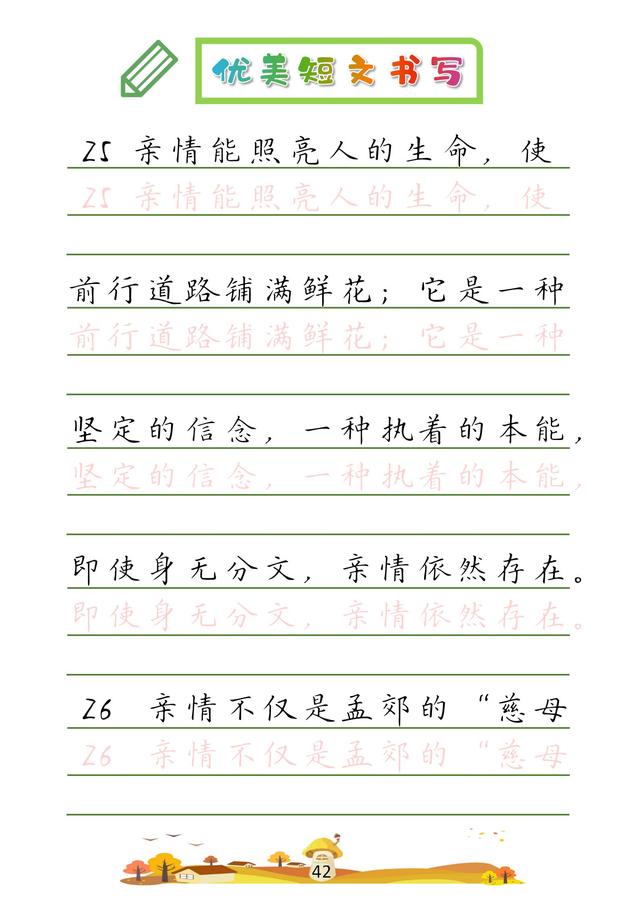 优美短文书写
25 亲情能照亮人的生命，使
25 亲情能照亮人的生命，使
前行道路铺满鲜花；它是一种
前行道路铺满鲜花；它是一种
坚定的信念，一种执着的本能，
坚定的信念，一种执着的本能，
即使身无分文，亲情依然存在。
即使身无分文，亲情依然存在。
26 亲情不仅是孟郊的“慈母
26 亲情不仅是孟郊的“慈母
42